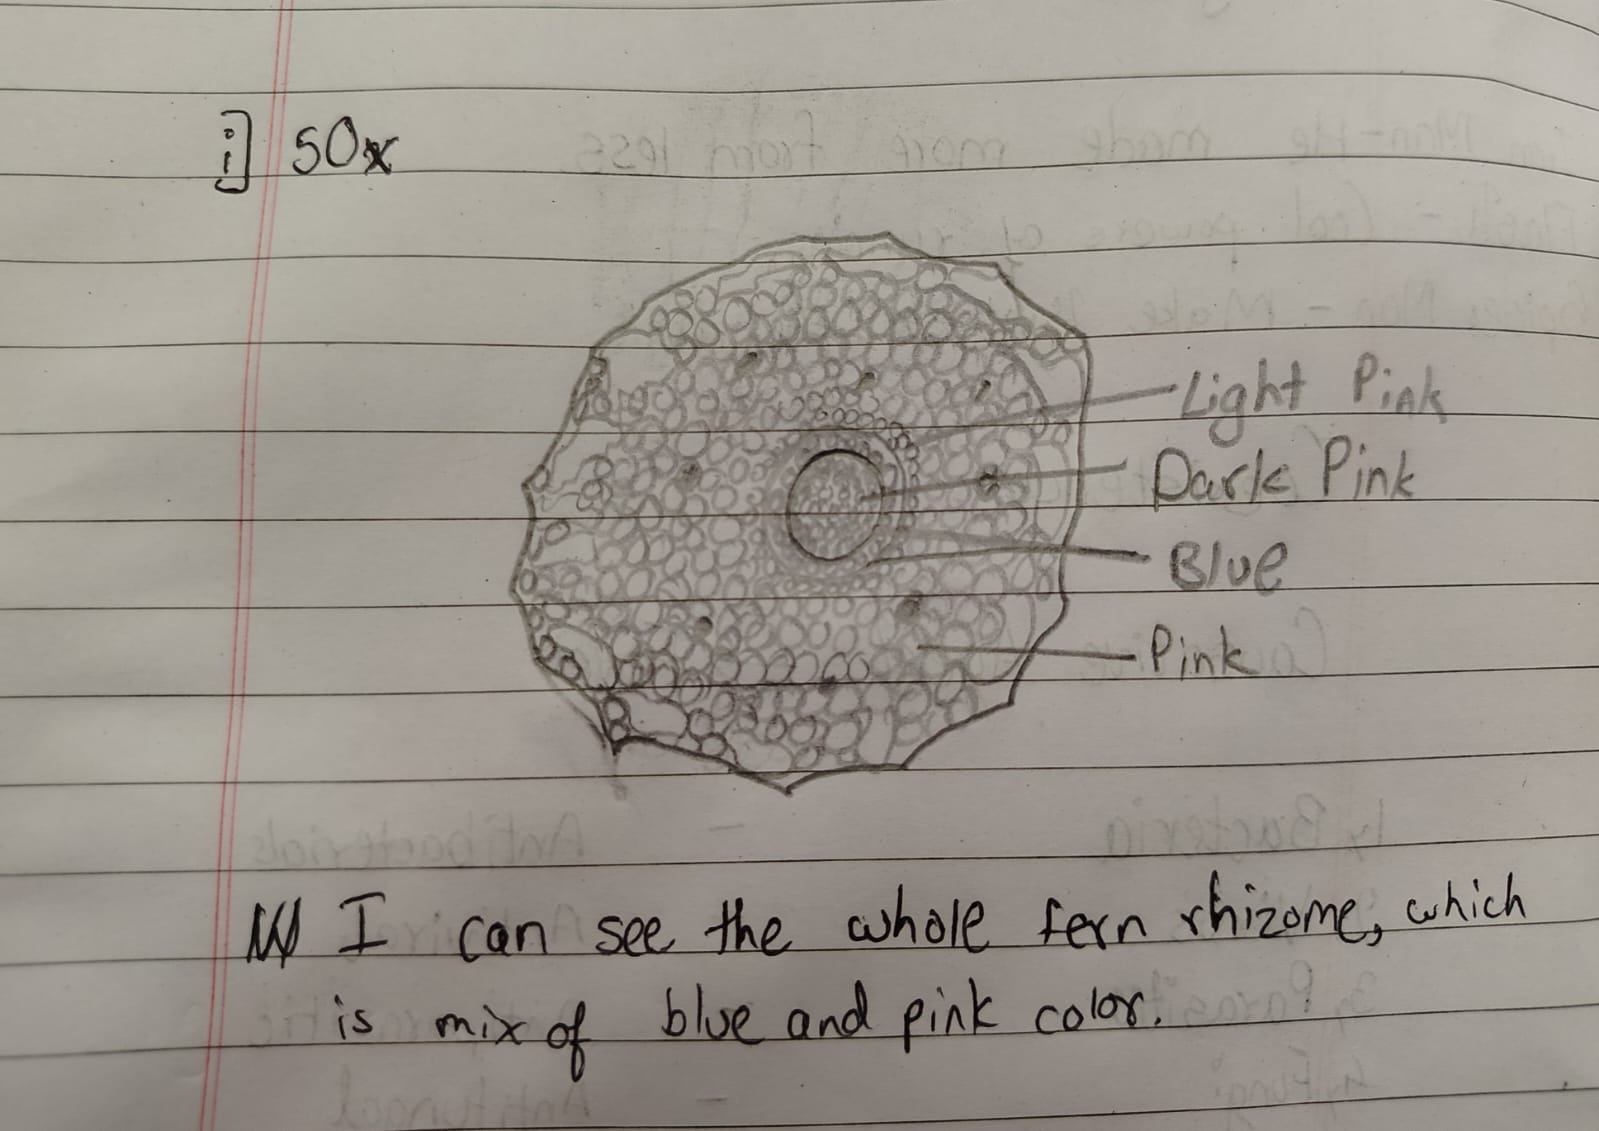 i] 50x
Light Pink
Dark Pink
Blue
Pink
I can see the whole fern rhizome, which
is mix of blue and pink color.